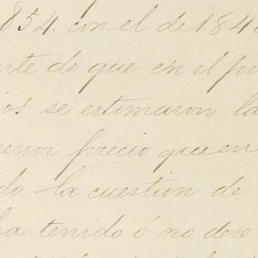 854. con el de 184
te de que en el pr
os se estimaron la
enor precio que en
do la cuestion de
ha tenido ó no dere